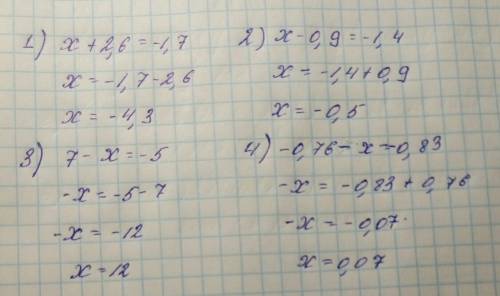 1) x + 2,6 = -1,7
x = -1,7 - 2,6
x = -4,3
2) x - 0,9 = -1,4
x = -1,4 + 0,9
x = -0,5
3) 7 - x = -5
-x = -5 - 7
-x = -12
x = 12
4) -0,76 - x - 0,83
-x = -0,83 + 0,76
-x = -0,07.
x = 0,07